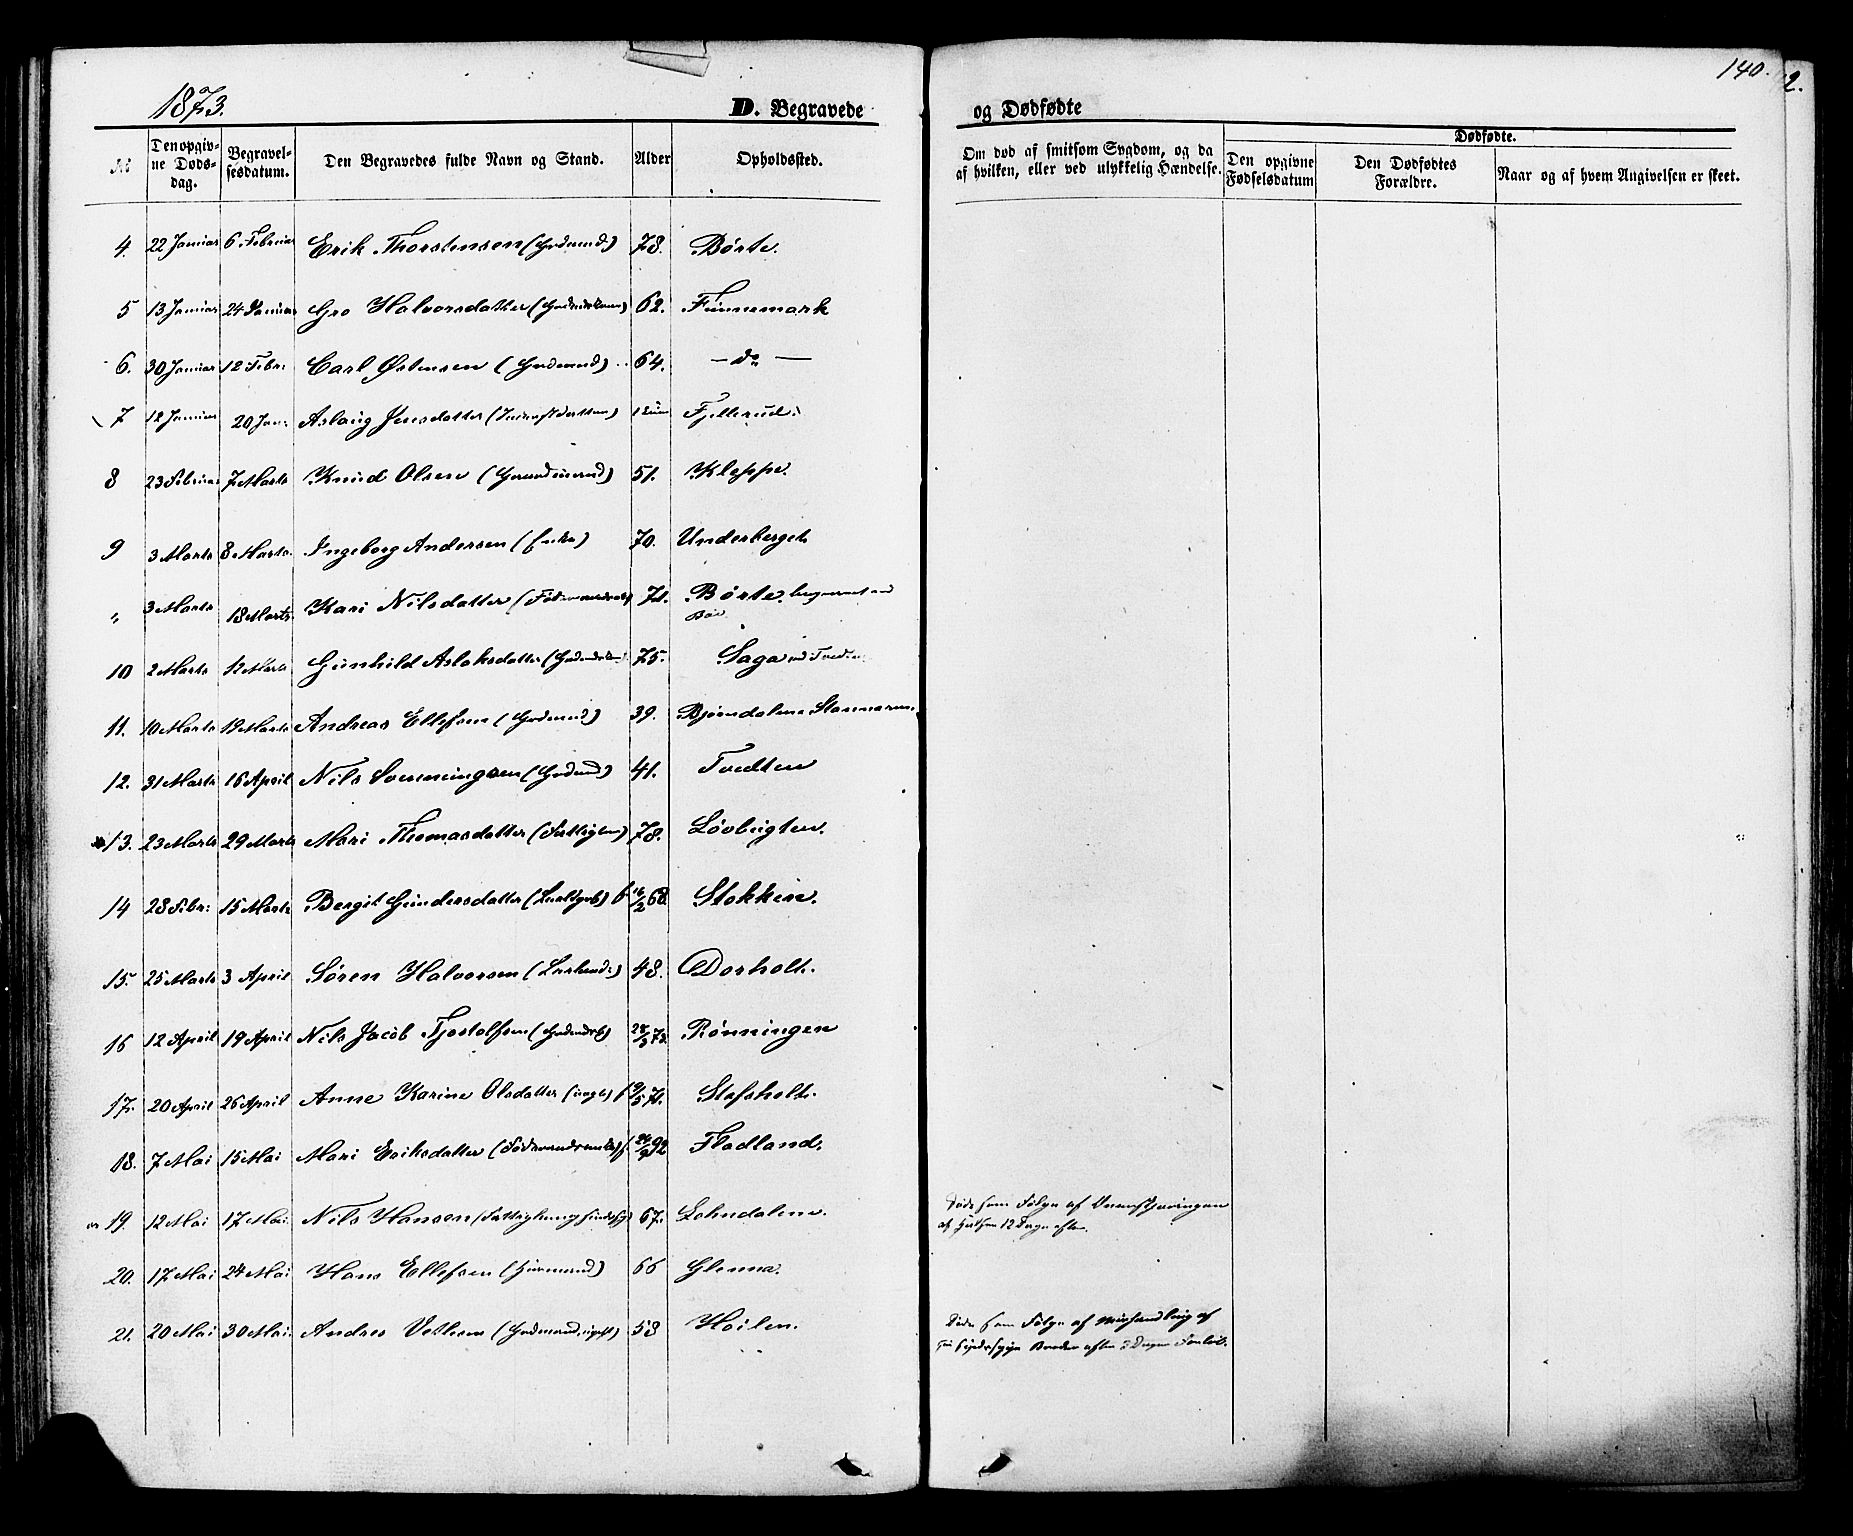 1873.
D. Begravede
og Dødfødte
140.
2.
№ Den opgivne Døds-dag. Begravelsesdatum. Den Begravedes fulde Navn og Stand. Alder Opholdssted. Om død af smitsom Sygdom, og da af hvilken, eller ved ulykkelig Hændelse. Dødfødte. Den opgivne Fødselsdatum Den Dødfødtes Forældre. Naar og af hvem Angivelsen er skeet.
4. 22 Januar 6 Februar Erik Thorstensen (Gdmand) 78. Børte.
5 13 Januar 24 Januar Gro Halvorsdatter 62. Finnemark
6. 30 Januar 12 Febr: Carl Østensen (Gdmand) 64. — do —
7 12 Januar 20 Jan: Aslaug Jensdatter Fjellerud:
8 23 Februar 7 Marts Knud Olsen 51. Kleppe.
9 3 Marts 8 Marts. Ingeborg Andersen (Enke) 70. Underberget.
" 3 Marts 18 Marts. Kari Nilsdatter 71. Børte. begravet ved
Bøe.
10 2 Marts 12 Marts Gunhild Aslaksdatter 75. Saga
11. 10 Marts 19 Marts Andreas Ellefsen (Gdmand) 39. Bjørndalen
12. 31 Marts 16 April Nils Sveinungsen (Gdmand) 41. Tvedten
13. 23 Marts 29 Marts Mari Thomasdatter (Fattiglem) 78. Løvbugten.
14 28 Febr: 15 Marts Bergit Gundersdatter 16/2 68 Stokken.
15. 25 Marts 3 April Søren Halvorsen 48. Dorholt.
16 12 April 19 April Nils Jacob Tjostolfsen 28/3 73. Rønningen
17. 20 April 26 April Anne Karine Olsdatter (ugift) f 9/5 71. Stefsholt.
18. 7 Mai 15 Mai Mari Eriksdatter Fladland.
19. 12 Mai 17 Mai. Nils Hansen 67. Lohndalen. Døde som Følge af
12 Dage efter.
20. 17 Mai 24 Mai Hans Ellefsen (Huusmand) 66 Glenna.
21. 20 Mai 30 Mai. Andres Vetlesen (Gdmand, ugift) 58 Høilen. Døde som Følge af Mishandling af
Broder efter 3 Dages Forløb.